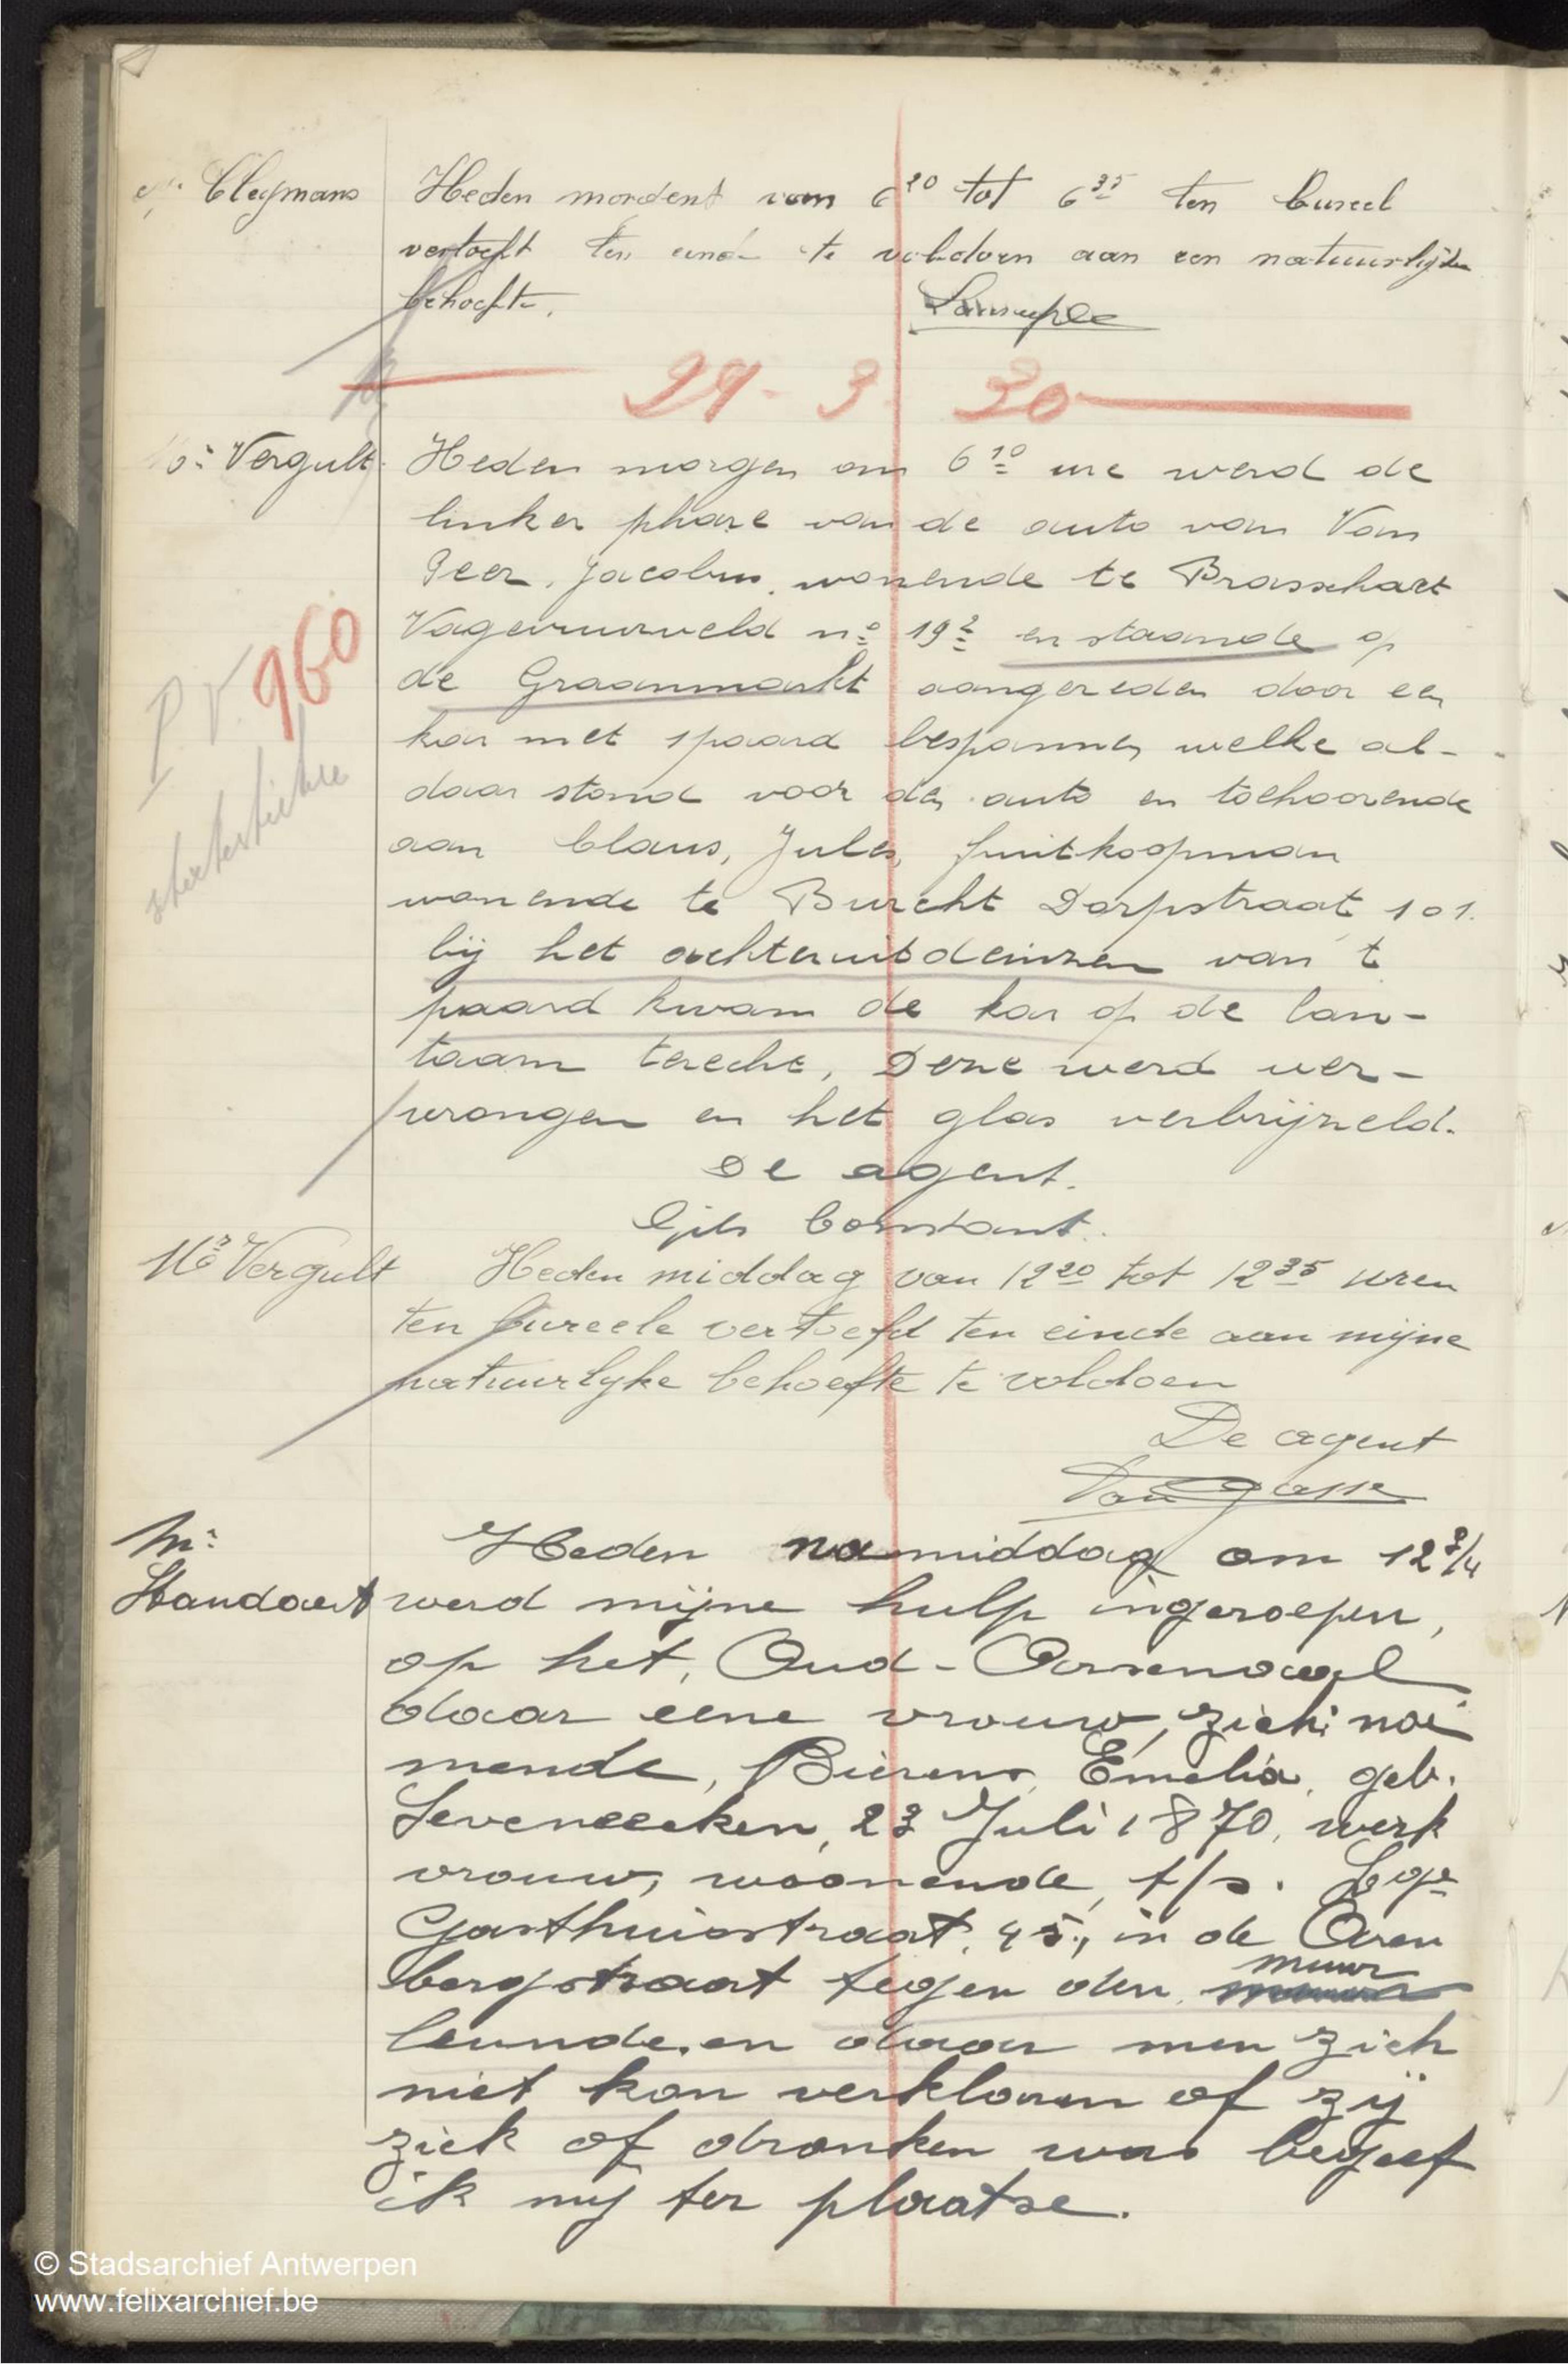 Mr Cleymans
Heden mordent van 6 20 tot 6 35 ten bureel
vertoeft ten eind te voldoen aan een natuurlijke
behoefte.
29 - 3 30
Mr Vergult
Heden morgen om 6 10 ure werd de
linker phare van de auto van Van
Geer, Jacobus, wonende te Brasschaet
Vagevuurveld no 192 en staande op
P.V. 960
de Graanmarkt aangereden door een
kar met 1 paard bespannen welke al-
daar stond voor den auto en toehoorende
aan Claus, Jules, fruitkoopman
wonende te Burcht Dorpstraat 101.
bij het achteruitdeinzen van t
paard kwam de kar op de lan-
taarn terecht, Deze werd ver-
wrongen en het glas verbrijzeld.
De agent.
Gils Constant.
Mr Vergult
Heden middag van 12 20 tot 12 35 uren
ten bureele vertoefd ten einde aan mijne
natuurlyke behoefte te voldoen
De agent
Mr
Heden namiddag om 12 3/4
Standaert
werd mijne hulp ingeroepen,
op het, Oud-Arsenaal
daar eene vrouw, zich noe
mende, Bierens, Emelia, geb.
Leveneeken, 23 Juli 1870, werk
vrouw, woonende, t/s. Lge
Gasthuisstraat, 45, in de Aren
bergstraat tegen den muur
leunde, en daar men zich
niet kon verklaren of zij
ziek of dronken was begeef
ik mij ter plaatse.
© Stadsarchief Antwerpen
www.felixarchief.be